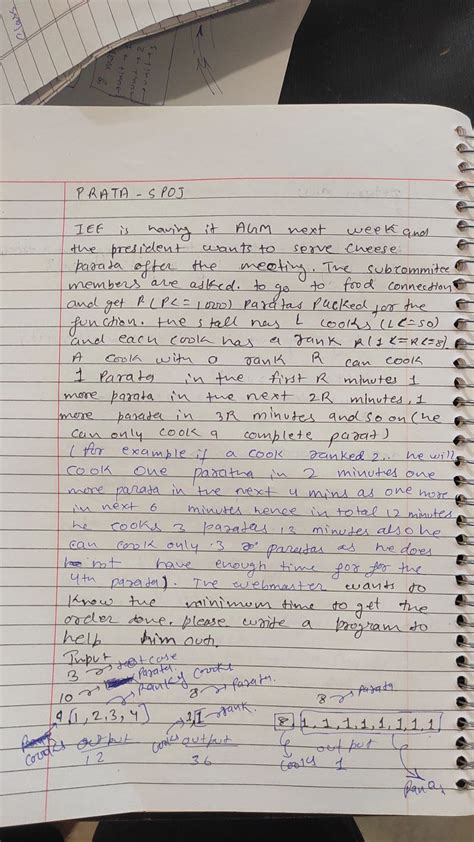 PRATA - SPOJ
IEF is having it AGM next week and
the president wants to serve cheese
parata after the meeting. The subcommitee
members are asked. to go to food connection
and get P (P<=1000) paratas packed for the
function. the stall has L cooks (L<=50)
and each cook has a rank R(1<=R<=8).
A cook with a rank R can cook
1 Parata in the first R minutes 1
more parata in the next 2R minutes, 1
more parata in 3R minutes and so on (he
can only cook a complete parat)
(for example if a cook ranked 2,.. he will
cook one paratha in 2 minutes one
more parata in the next 4 mins as one more
in next 6 minutes hence in total 12 minutes
he cooks 3 paratas, 13 minutes also he
can cook only 3 paratas as he does
not have enough time for for the
4th parata). The webmaster wants to
know the minimum time to get the
order done. please write a program to
help him out.
Input
3 test case
10 Parata. 8 Parata. 8 Parata
4 [1,2,3,4] rank of cooks 1 1 rank. 8 1,1,1,1,1,1,1,1
cooks output cooks output cooks output
12 36 1
Ranks